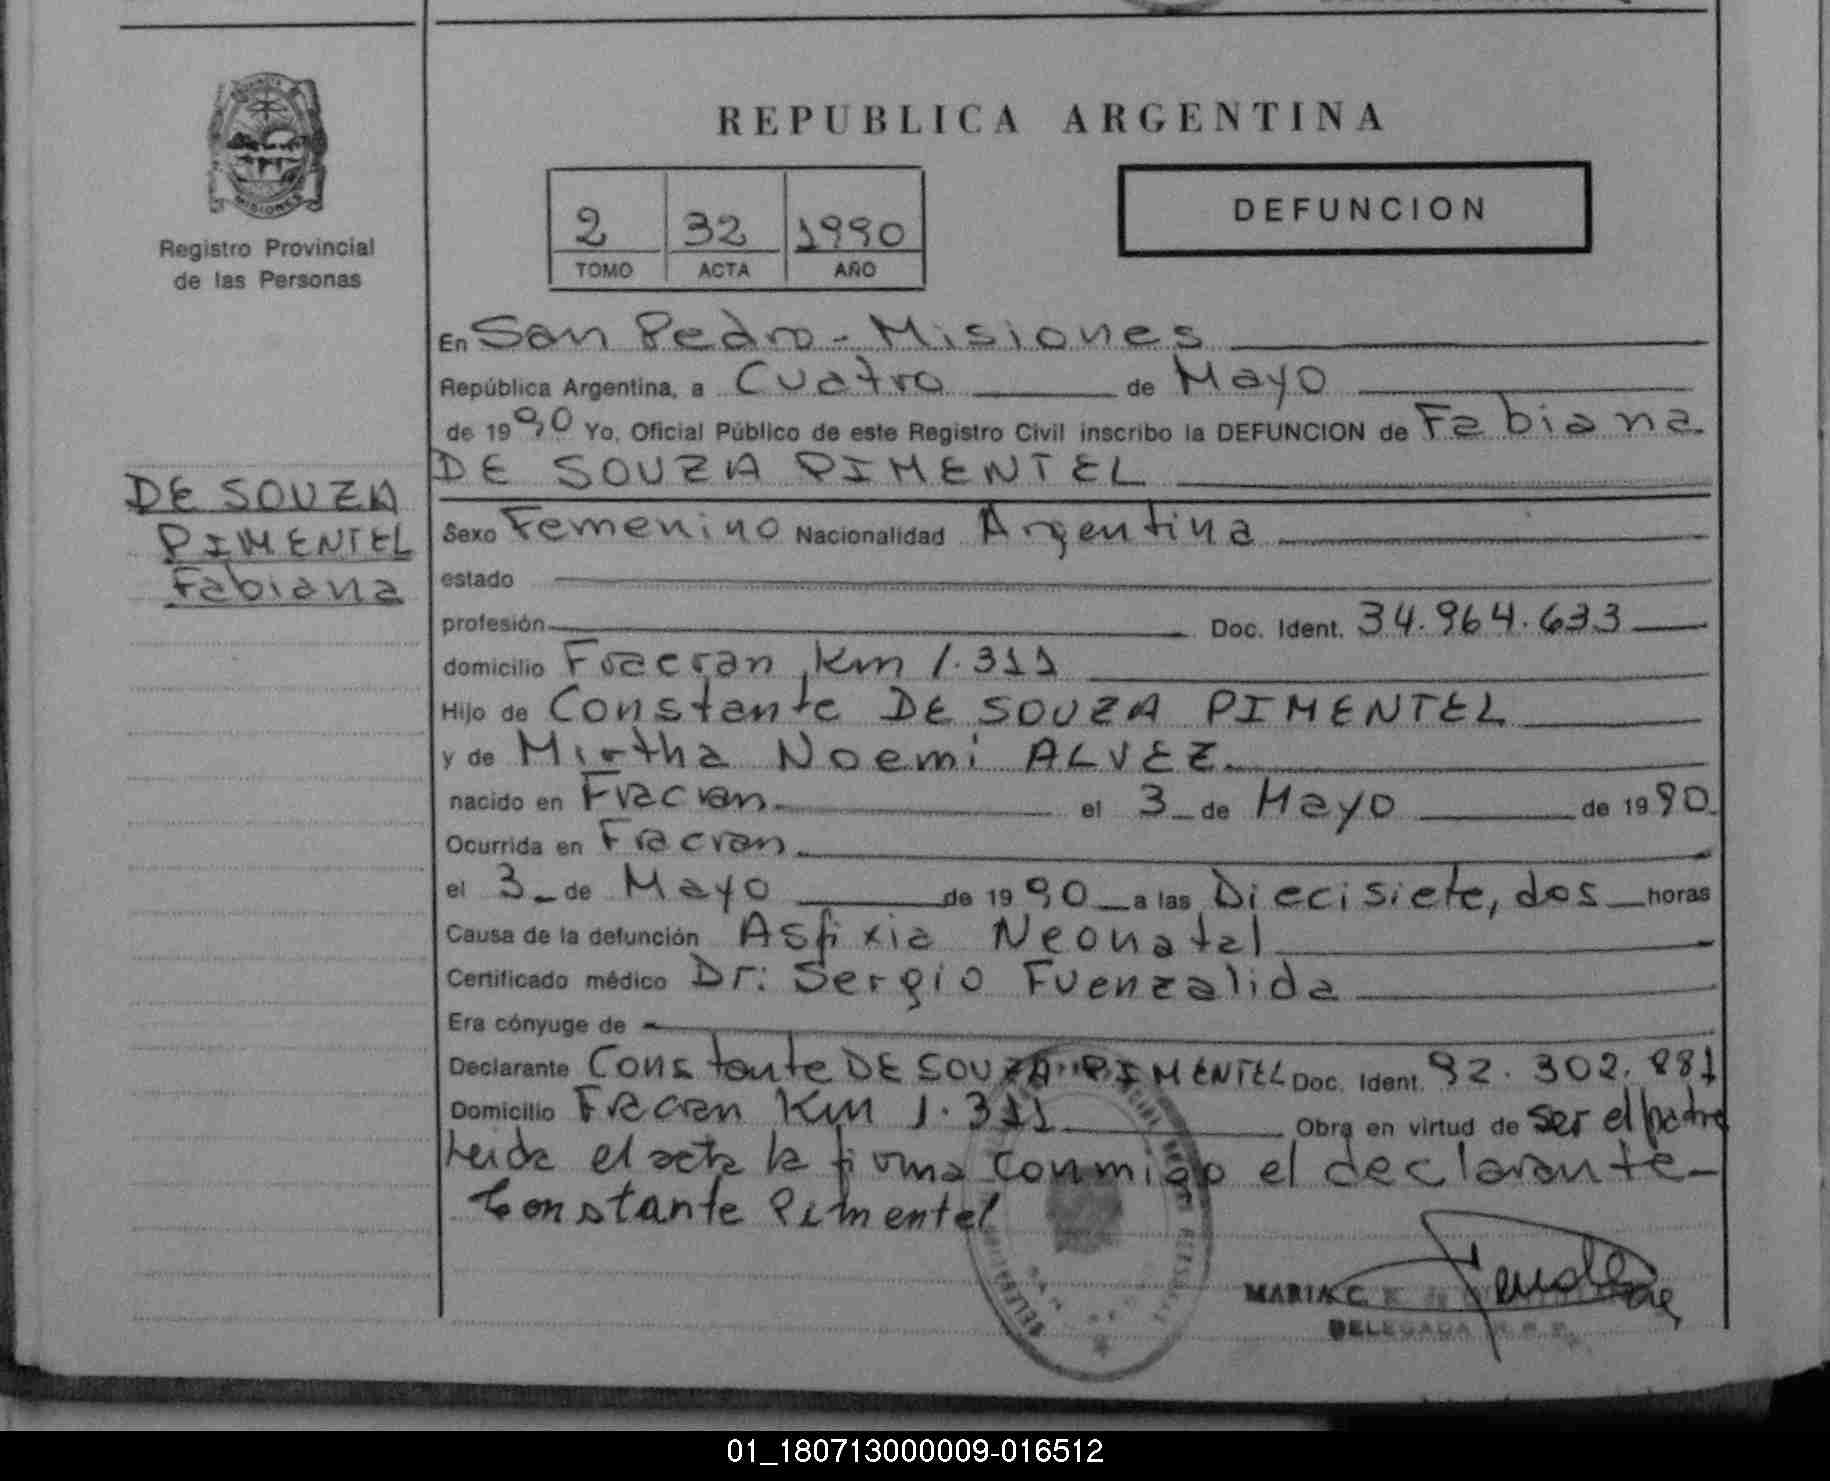 REPUBLICA ARGENTINA
MISIONES
Registro Provincial
de las Personas
2 32 1990
TOMO ACTA AÑO
DEFUNCION
En San Pedro - Misiones
República Argentina, a Cuatro de Mayo
de 1990 Yo, Oficial Público de este Registro Civil inscribo la DEFUNCION de Fabiana
DE SOUZA PIMENTEL
DE SOUZA
PIMENTEL
Fabiana
Sexo Femenino Nacionalidad Argentina
estado
profesión Doc. Ident. 34.964.633
domicilio Fracran Km 1.311
Hijo de Constante DE SOUZA PIMENTEL
y de Mirtha Noemi ALVEZ
nacido en Fracran el 3 de Mayo de 1990
Ocurrida en Fracran
el 3 de Mayo de 1990 a las Diecisiete, dos horas
Causa de la defunción Asfixia Neonatal
Certificado médico Dr: Sergio Fuenzalida
Era cónyuge de
Declarante Constante DE SOUZA PIMENTEL Doc. Ident. 92.302.881
Domicilio Fracran Km 1.311 Obra en virtud de ser el padre
Leida el acta la firma conmigo el declarante-
Constante Pimentel
MARIA C.
DELEGADA
01_180713000009-016512